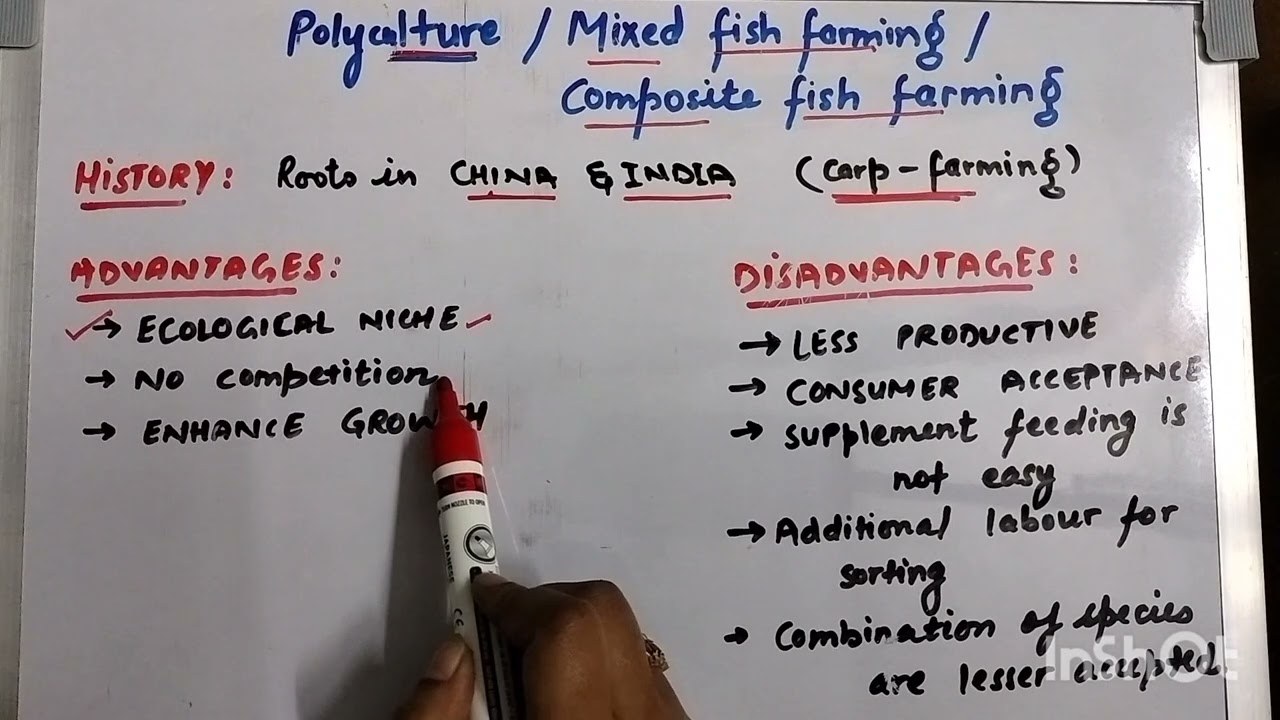 Polyculture / Mixed fish farming /
Composite fish farming
HISTORY: Roots in CHINA & INDIA (carp-farming)
ADVANTAGES:
→ ECOLOGICAL NICHE
→ NO competition
→ ENHANCE GROWTH
DISADVANTAGES:
→ LESS PRODUCTIVE
→ CONSUMER ACCEPTANCE
→ supplement feeding is
not easy
→ Additional labour for
sorting
→ Combination of species
are lesser accepted
InShot
JAPANESE